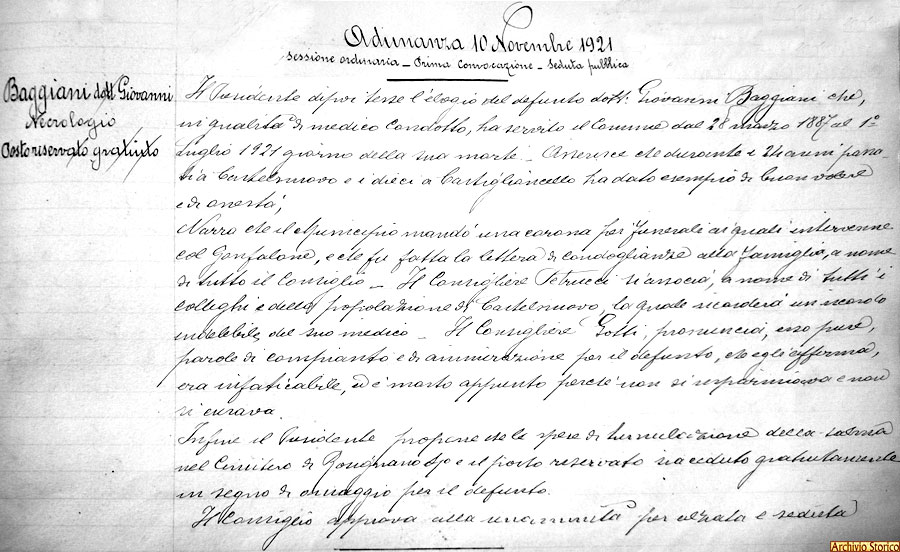 Adunanza 10 Novembre 1921
Sessione ordinaria – Prima Convocazione – Seduta pubblica
Baggiani dott Giovanni
Necrologio
Posto riservato gratuito
Il Presidente dipoi tesse l'elogio del defunto dott: Giovanni Baggiani che,
in qualità di medico condotto, ha servito il Comune dal 28 marzo 1887 al 1°
Luglio 1921 giorno della sua morte – Asserisce che durante i 24 anni passa
ti a Castelnuovo e i dieci a Castiglioncello ha dato esempio di buon volere
e di onestà;
Narra che il Municipio mandò una corona pei funerali ai quali intervenne
col Gonfalone, e che fu fatta la lettera di condoglianze alla famiglia, a nome
di tutto il Consiglio – Il Consigliere Petrucci si associa, a nome di tutti i
colleghi e della popolazione di Castelnuovo, la quale ricorderà un ricordo
indelebile del suo medico – Il Consigliere Gotti, pronuncia, esso pure,
parole di compianto e di ammirazione per il defunto, che egli afferma,
era infaticabile, ed è morto appunto perché non si risparmiava e non
si curava.
Infine il Presidente propone che le spese di tumulazione della salma
nel Cimitero di Rosignano e il posto riservato sia ceduto gratuitamente
in segno di omaggio per il defunto.
Il Consiglio approva alla unanimità per alzata e seduta
Archivio Storico